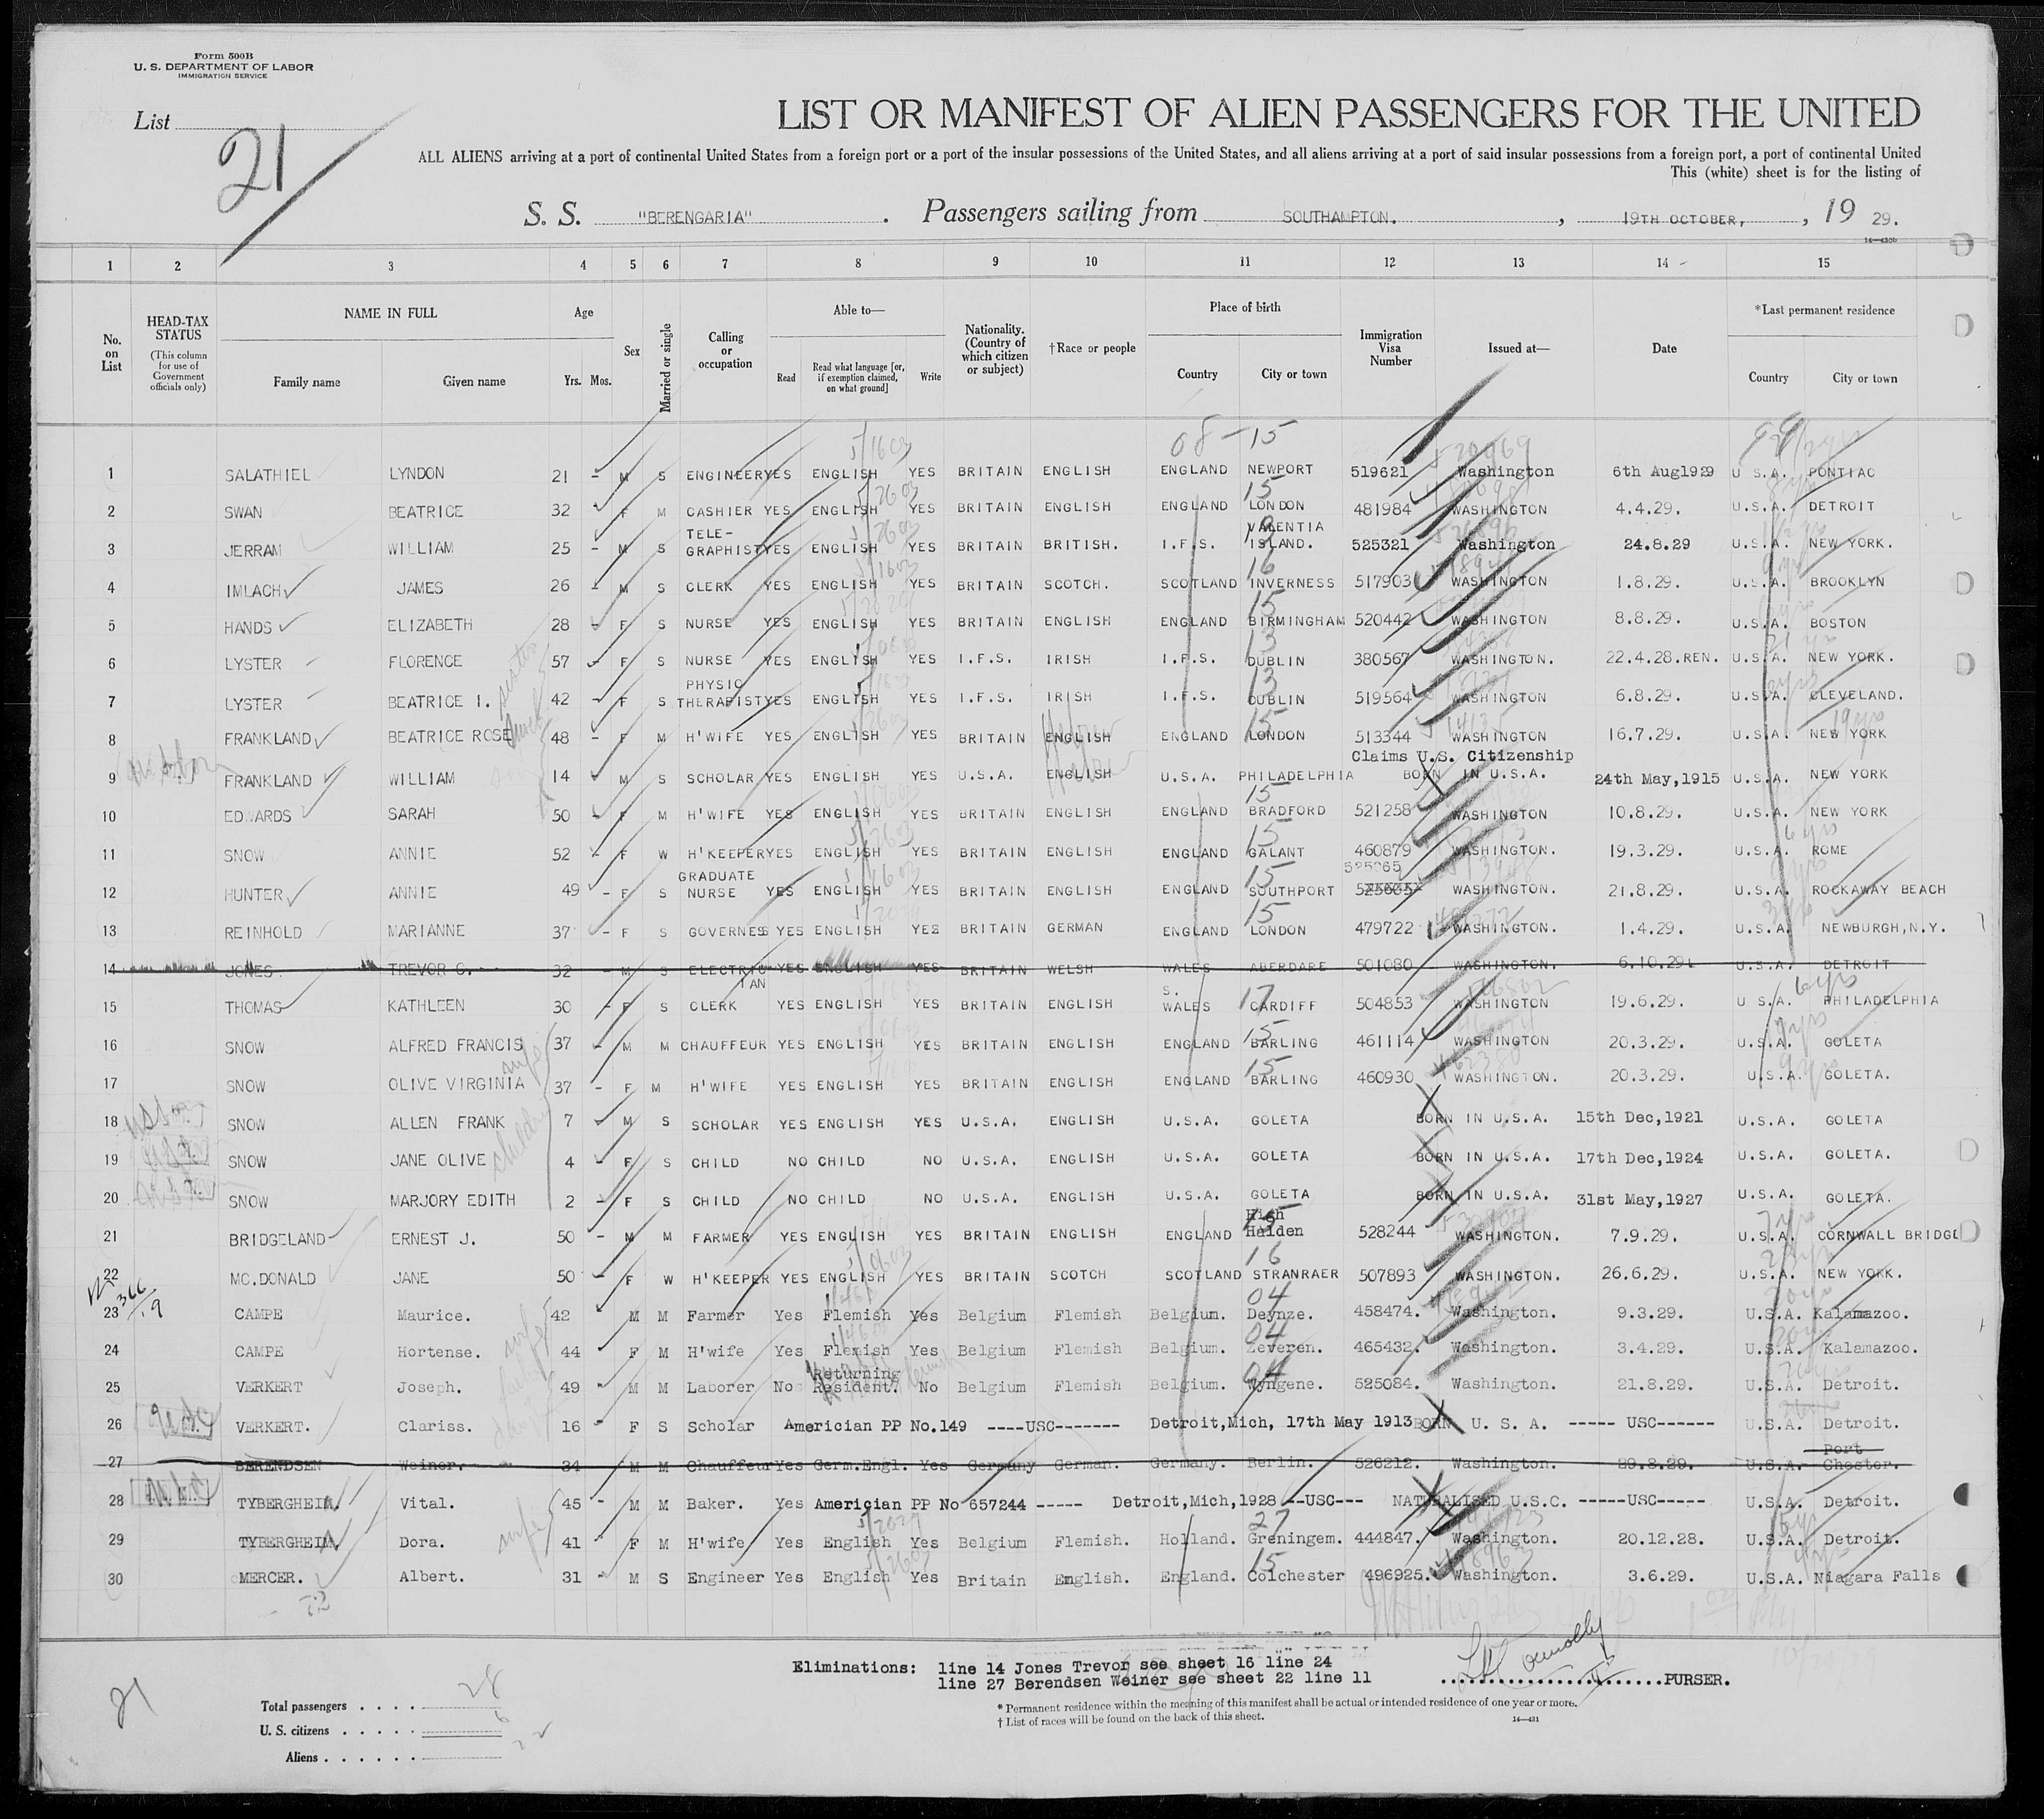 Form 500B
U. S. DEPARTMENT OF LABOR
IMMIGRATION SERVICE
List
21
LIST OR MANIFEST OF ALIEN PASSENGERS FOR THE UNITED
ALL ALIENS arriving at a port of continental United States from a foreign port or a port of the insular possessions of the United States, and all aliens arriving at a port of said insular possessions from a foreign port, a port of continental United
This (white) sheet is for the listing of
S. S. "BERENGARIA" . Passengers sailing from SOUTHAMPTON. , 19TH OCTOBER, , 19 29.
14—430b
1 2 3 4 5 6 7 8 9 10 11 12 13 14 15
No. on List
HEAD-TAX STATUS (This column for use of Government officials only)
NAME IN FULL
Family name Given name
Age
Yrs. Mos.
Sex
Married or single
Calling or occupation
Able to—
Read Read what language [or, if exemption claimed, on what ground] Write
Nationality. (Country of which citizen or subject)
†Race or people
Place of birth
Country City or town
Immigration Visa Number
Issued at—
Date
*Last permanent residence
Country City or town
08-15
1 SALATHIEL LYNDON 21 - M S ENGINEER YES ENGLISH YES BRITAIN ENGLISH ENGLAND NEWPORT 519621 Washington 6th Aug1929 U S.A. PONTIAC
2 SWAN BEATRICE 32 - F M CASHIER YES ENGLISH YES BRITAIN ENGLISH ENGLAND 15 LONDON 481984 WASHINGTON 4.4.29. U.S.A. DETROIT
3 JERRAM WILLIAM 25 - M S TELE-GRAPHIST YES ENGLISH YES BRITAIN BRITISH. I.F.S. VALENTIA ISLAND. 525321 Washington 24.8.29 U.S.A. NEW YORK.
4 IMLACH JAMES 26 - M S CLERK YES ENGLISH YES BRITAIN SCOTCH. SCOTLAND 16 INVERNESS 517903 WASHINGTON 1.8.29. U.S.A. BROOKLYN
5 HANDS ELIZABETH 28 - F S NURSE YES ENGLISH YES BRITAIN ENGLISH ENGLAND 15 BIRMINGHAM 520442 WASHINGTON 8.8.29. U.S.A. BOSTON
6 LYSTER FLORENCE 57 - F S NURSE YES ENGLISH YES I.F.S. IRISH I.F.S. 13 DUBLIN 380567 WASHINGTON. 22.4.28.REN. U.S.A. NEW YORK.
7 LYSTER BEATRICE I. sister 42 - F S PHYSIC THERAPIST YES ENGLISH YES I.F.S. IRISH I.F.S. 13 DUBLIN 519564 WASHINGTON 6.8.29. U.S.A. CLEVELAND.
8 FRANKLAND BEATRICE ROSE 48 - F M H'WIFE YES ENGLISH YES BRITAIN ENGLISH ENGLAND 15 LONDON 513344 WASHINGTON 16.7.29. U.S.A. 19 yrs NEW YORK
Claims U.S. Citizenship
9 FRANKLAND WILLIAM son 14 M S SCHOLAR YES ENGLISH YES U.S.A. ENGLISH U.S.A. PHILADELPHIA BORN IN U.S.A. 24th May,1915 U.S.A. NEW YORK
10 EDWARDS SARAH 50 - F M H'WIFE YES ENGLISH YES BRITAIN ENGLISH ENGLAND 15 BRADFORD 521258 WASHINGTON 10.8.29. U.S.A. NEW YORK
11 SNOW ANNIE 52 - F W H'KEEPER YES ENGLISH YES BRITAIN ENGLISH ENGLAND 15 GALANT 460879 WASHINGTON. 19.3.29. U.S.A. 6 yrs ROME
12 HUNTER ANNIE 49 - F S GRADUATE NURSE YES ENGLISH YES BRITAIN ENGLISH ENGLAND 15 SOUTHPORT 525065 WASHINGTON. 21.8.29. U.S.A. ROCKAWAY BEACH
13 REINHOLD MARIANNE 37 - F S GOVERNESS YES ENGLISH YES BRITAIN GERMAN ENGLAND 15 LONDON 479722 WASHINGTON. 1.4.29. U.S.A. NEWBURGH,N.Y.
14 JONES. TREVOR C. 32 - M S ELECTRIC IAN YES ENGLISH YES BRITAIN WELSH WALES ABERDARE 501080 WASHINGTON. 6.10.29. U.S.A. DETROIT
15 THOMAS KATHLEEN 30 - F S CLERK YES ENGLISH YES BRITAIN ENGLISH S. WALES 17 CARDIFF 504853 WASHINGTON 19.6.29. U S.A. 6 yrs PHILADELPHIA
16 SNOW ALFRED FRANCIS 37 - M M CHAUFFEUR YES ENGLISH YES BRITAIN ENGLISH ENGLAND 15 BARLING 461114 WASHINGTON 20.3.29. U.S.A. GOLETA
17 SNOW OLIVE VIRGINIA wife 37 - F M H'WIFE YES ENGLISH YES BRITAIN ENGLISH ENGLAND 15 BARLING 460930 WASHINGTON. 20.3.29. U.S.A. GOLETA.
18 SNOW ALLEN FRANK 7 - M S SCHOLAR YES ENGLISH YES U.S.A. ENGLISH U.S.A. GOLETA BORN IN U.S.A. 15th Dec,1921 U.S.A. GOLETA
19 SNOW JANE OLIVE children 4 - F S CHILD NO CHILD NO U.S.A. ENGLISH U.S.A. GOLETA BORN IN U.S.A. 17th Dec,1924 U.S.A. GOLETA.
20 SNOW MARJORY EDITH 2 - F S CHILD NO CHILD NO U.S.A. ENGLISH U.S.A. GOLETA BORN IN U.S.A. 31st May,1927 U.S.A. GOLETA.
21 BRIDGELAND ERNEST J. 50 - M M FARMER YES ENGLISH YES BRITAIN ENGLISH ENGLAND 15 High Halden 528244 WASHINGTON. 7.9.29. U.S.A. 7 yrs CORNWALL BRIDGE
22 MC.DONALD JANE 50 - F W H'KEEPER YES ENGLISH YES BRITAIN SCOTCH SCOTLAND 16 STRANRAER 507893 WASHINGTON. 26.6.29. U.S.A. NEW YORK.
23 CAMPE Maurice. 42 M M Farmer Yes Flemish Yes Belgium Flemish Belgium. 04 Deynze. 458474. Washington. 9.3.29. U.S.A Kalamazoo.
24 CAMPE Hortense. wife 44 F M H'wife Yes Flemish Yes Belgium Flemish Belgium. 04 Zeveren. 465432. Washington. 3.4.29. U.S.A. Kalamazoo.
25 VERKERT Joseph. 49 - M M Laborer No Returning Resident. No Belgium Flemish Belgium. 04 Wyngene. 525084. Washington. 21.8.29. U.S.A. Detroit.
26 VERKERT. Clariss. 16 - F S Scholar Americian PP No.149 ----USC------- Detroit,Mich, 17th May 1913 BORN U. S. A. ----- USC------ U.S.A. Detroit.
27 BERENDSEN Weiner. 34 M M Chauffeur Yes Germ.Engl. Yes Germany German. Germany. Berlin. 526212. Washington. 29.8.29. U.S.A. Port Chester.
28 TYBERGHEIM. Vital. 45 - M M Baker. Yes Americian PP No 657244 ----- Detroit,Mich,1928 --USC--- NATURALISED U.S.C. -----USC----- U.S.A. Detroit.
29 TYBERGHEIM. Dora. wife 41 - F M H'wife Yes English Yes Belgium Flemish. Holland. 27 Greningem. 444847. Washington. 20.12.28. U.S.A. Detroit.
30 MERCER. Albert. 31 - M S Engineer Yes English Yes Britain English. England. 15 Colchester 496925. Washington. 3.6.29. U.S.A. Niagara Falls
Eliminations: line 14 Jones Trevor see sheet 16 line 24
line 27 Berendsen Weiner see sheet 22 line 11 PURSER.
21
Total passengers . . . . 28
U. S. citizens . . . . . 6
Aliens . . . . . . 22
* Permanent residence within the meaning of this manifest shall be actual or intended residence of one year or more.
† List of races will be found on the back of this sheet.
14—431